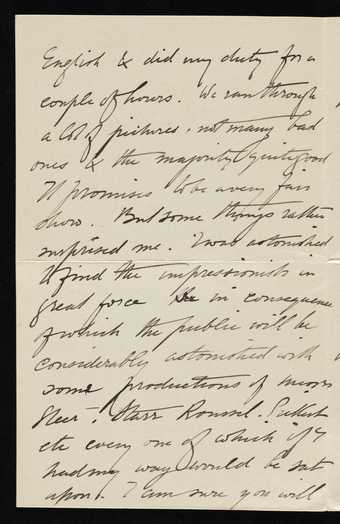 English & did my duty for a
couple of hours. We ran through
a lot of pictures, not many bad
ones & the majority quite good
It promises to be a very fair
show. But some things rather
surprised me. I was astonished
to find the impressionists in
great force in consequence
of which the public will be
considerably astonished with
some productions of messrs
Steer, Starr Roussel, Sickert
etc every one of which if I
had my way would be sat
upon. I am sure you will